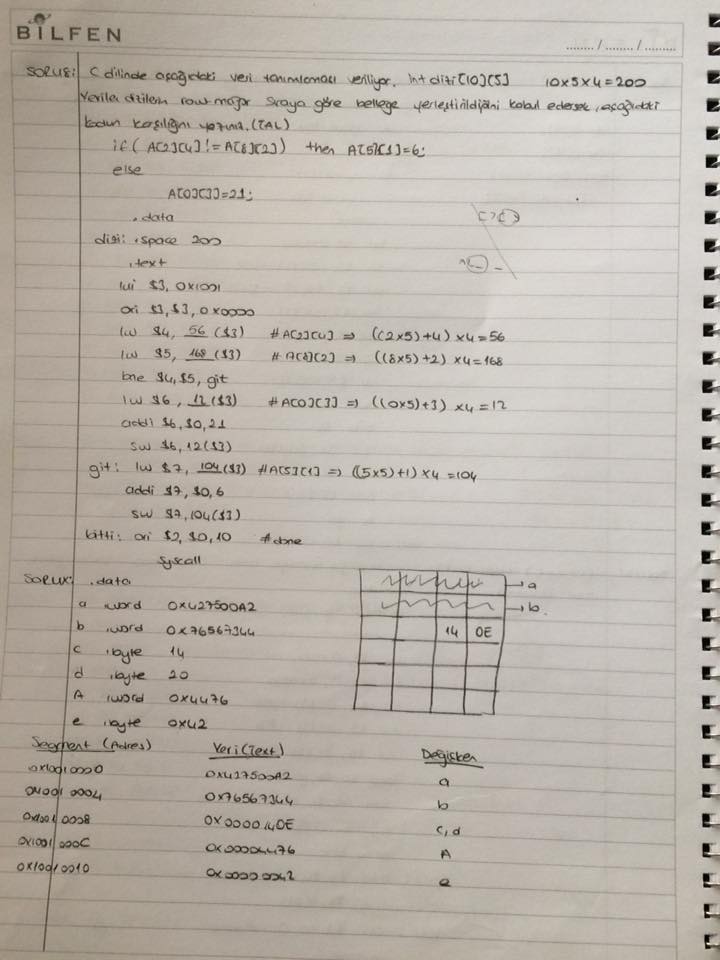 BİLFEN
......../......../.........
SORU8: C dilinde aşağıdaki veri tanımlaması veriliyor. Int dizi[10][5] 10x5x4=200
Veriler dizilerin row-major sıraya göre belleğe yerleştirildiğini kabul edersek, aşağıdaki
kodun karşılığını yazınız. (TAL)
if( A[2][4] != A[8][2]) then A[5][1]=6;
else
A[0][3]=21;
.data
dizi: .space 200
.text
lui $3, 0x1001
ori $3,$3,0x0000
lw $4, 56 ($3) #A[2][4] => ((2x5)+4) x4=56
lw $5, 168 ($3) #A[8][2] => ((8x5)+2) x4=168
bne $4,$5, git
lw $6, 12 ($3) #A[0][3] => ((0x5)+3) x4=12
addi $6,$0,21
sw $6,12($3)
git: lw $7, 104 ($3) #A[5][1] => ((5x5)+1) x4=104
addi $7,$0,6
sw $7,104($3)
bitti: ori $2,$0,10 #done
syscall
.data
a .word 0x427500A2
b .word 0x76567344
c .byte 14
d .byte 20
A .word 0x4476
e .byte 0x42
a
b
14 0E
Segment (Adres) Veri(Text) Değişken
0x10010000 0x427500A2 a
0x10010004 0x76567344 b
0x10010008 0x0000140E c,d
0x1001000C 0x00004476 A
0x10010010 0x00000042 e